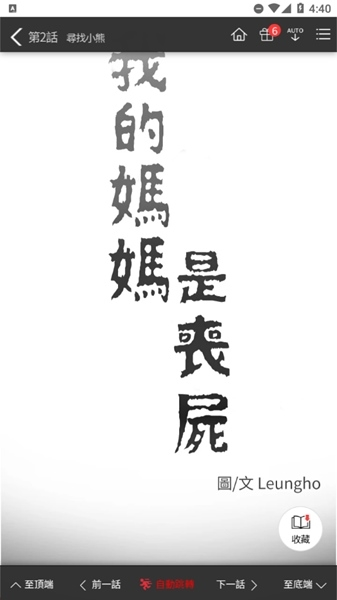 4:40
第2話 尋找小熊
6
AUTO
我的媽媽
是喪屍
圖/文 Leungho
收藏
至頂端
前一話
自動跳轉
下一話
至底端